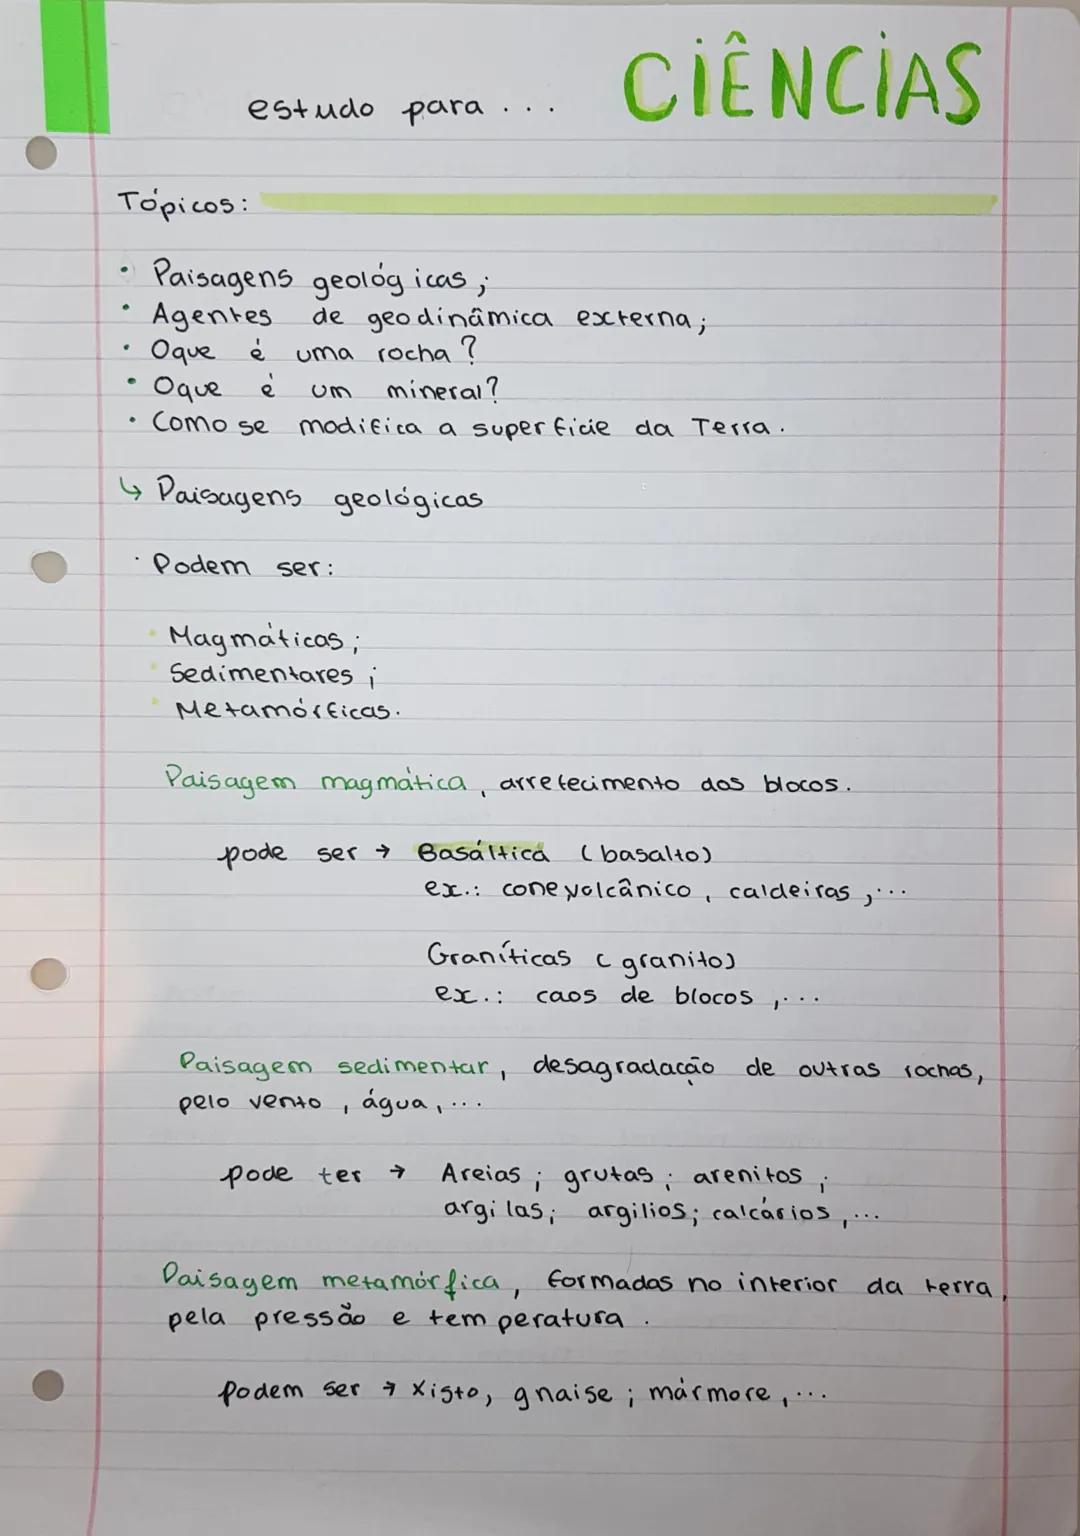 estudo para ... CIÊNCIAS
Tópicos:
• Paisagens geológicas;
• Agentes de geodinâmica externa;
• Oque é uma rocha?
• Oque é um mineral?
• Como se modifica a superfície da Terra.
↳ Paisagens geológicas
· Podem ser:
• Magmáticas;
• Sedimentares;
• Metamórficas.
Paisagem magmática, arrefecimento dos blocos.
pode ser → Basáltica (basalto)
ex.: cone volcânico, caldeiras,...
Graníticas (granito)
ex.: caos de blocos,...
Paisagem sedimentar, desagradação de outras rochas,
pelo vento, água,...
pode ter → Areias; grutas; arenitos;
argilas; argilios; calcários,...
Paisagem metamórfica, formadas no interior da terra,
pela pressão e temperatura.
podem ser → Xisto, gnaise; mármore,...